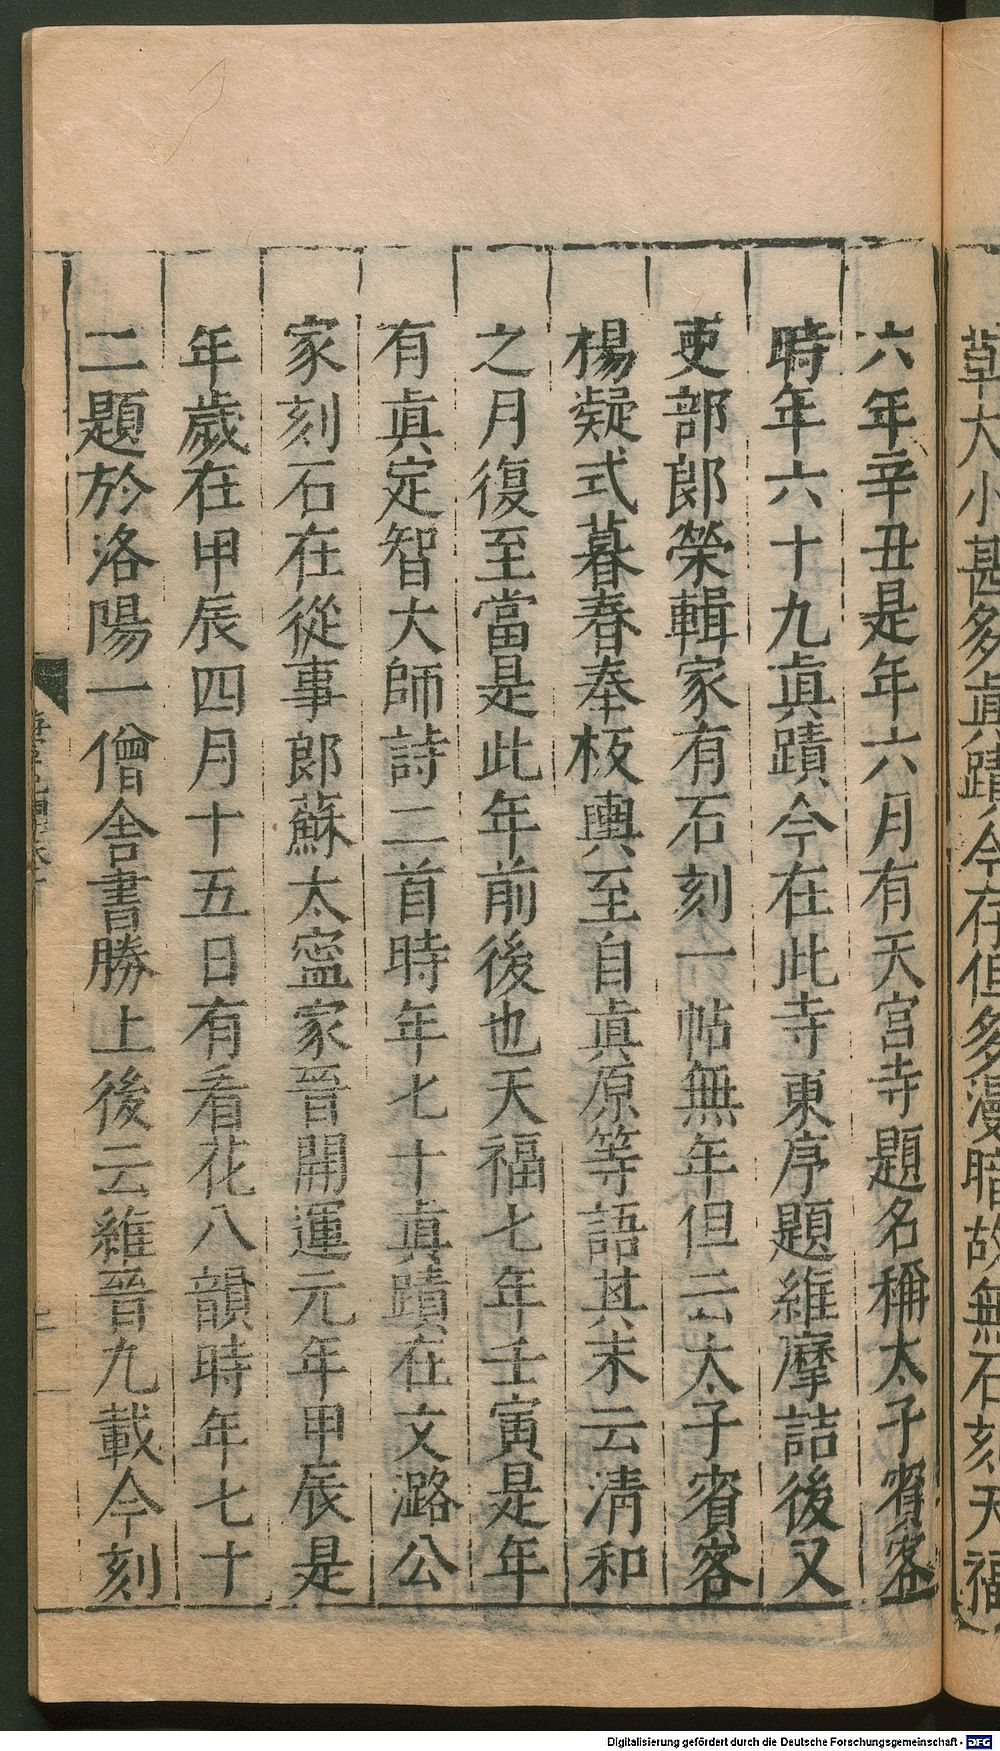 草大小甚多眞蹟今存但多漫暗故無石刻天福
六年辛丑是年六月有天宫寺題名稱太子賓客
時年六十九眞蹟今在此寺東序題維摩詰後又
吏部郎榮輯家有石刻一帖無年但云太子賓客
楊凝式暮春奉板輿至自眞原等語其末云清和
之月復至當是此年前後也天福七年壬寅是年
有眞定智大師詩二首時年七十眞蹟在文潞公
家刻石在從事郎蘇太寧家晉開運元年甲辰是
年歲在甲辰四月十五日有看花八韻時年七十
二題於洛陽一僧舍書勝上後云維晉九載今刻
Digitalisierung gefördert durch die Deutsche Forschungsgemeinschaft - DFG